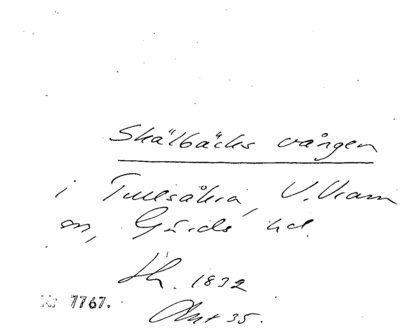 Skälbäcks vången
i Tullsåkra, V. Vram
sn, Gärds hd.
Sk. 1832
Akt 35.
Nr 7767.